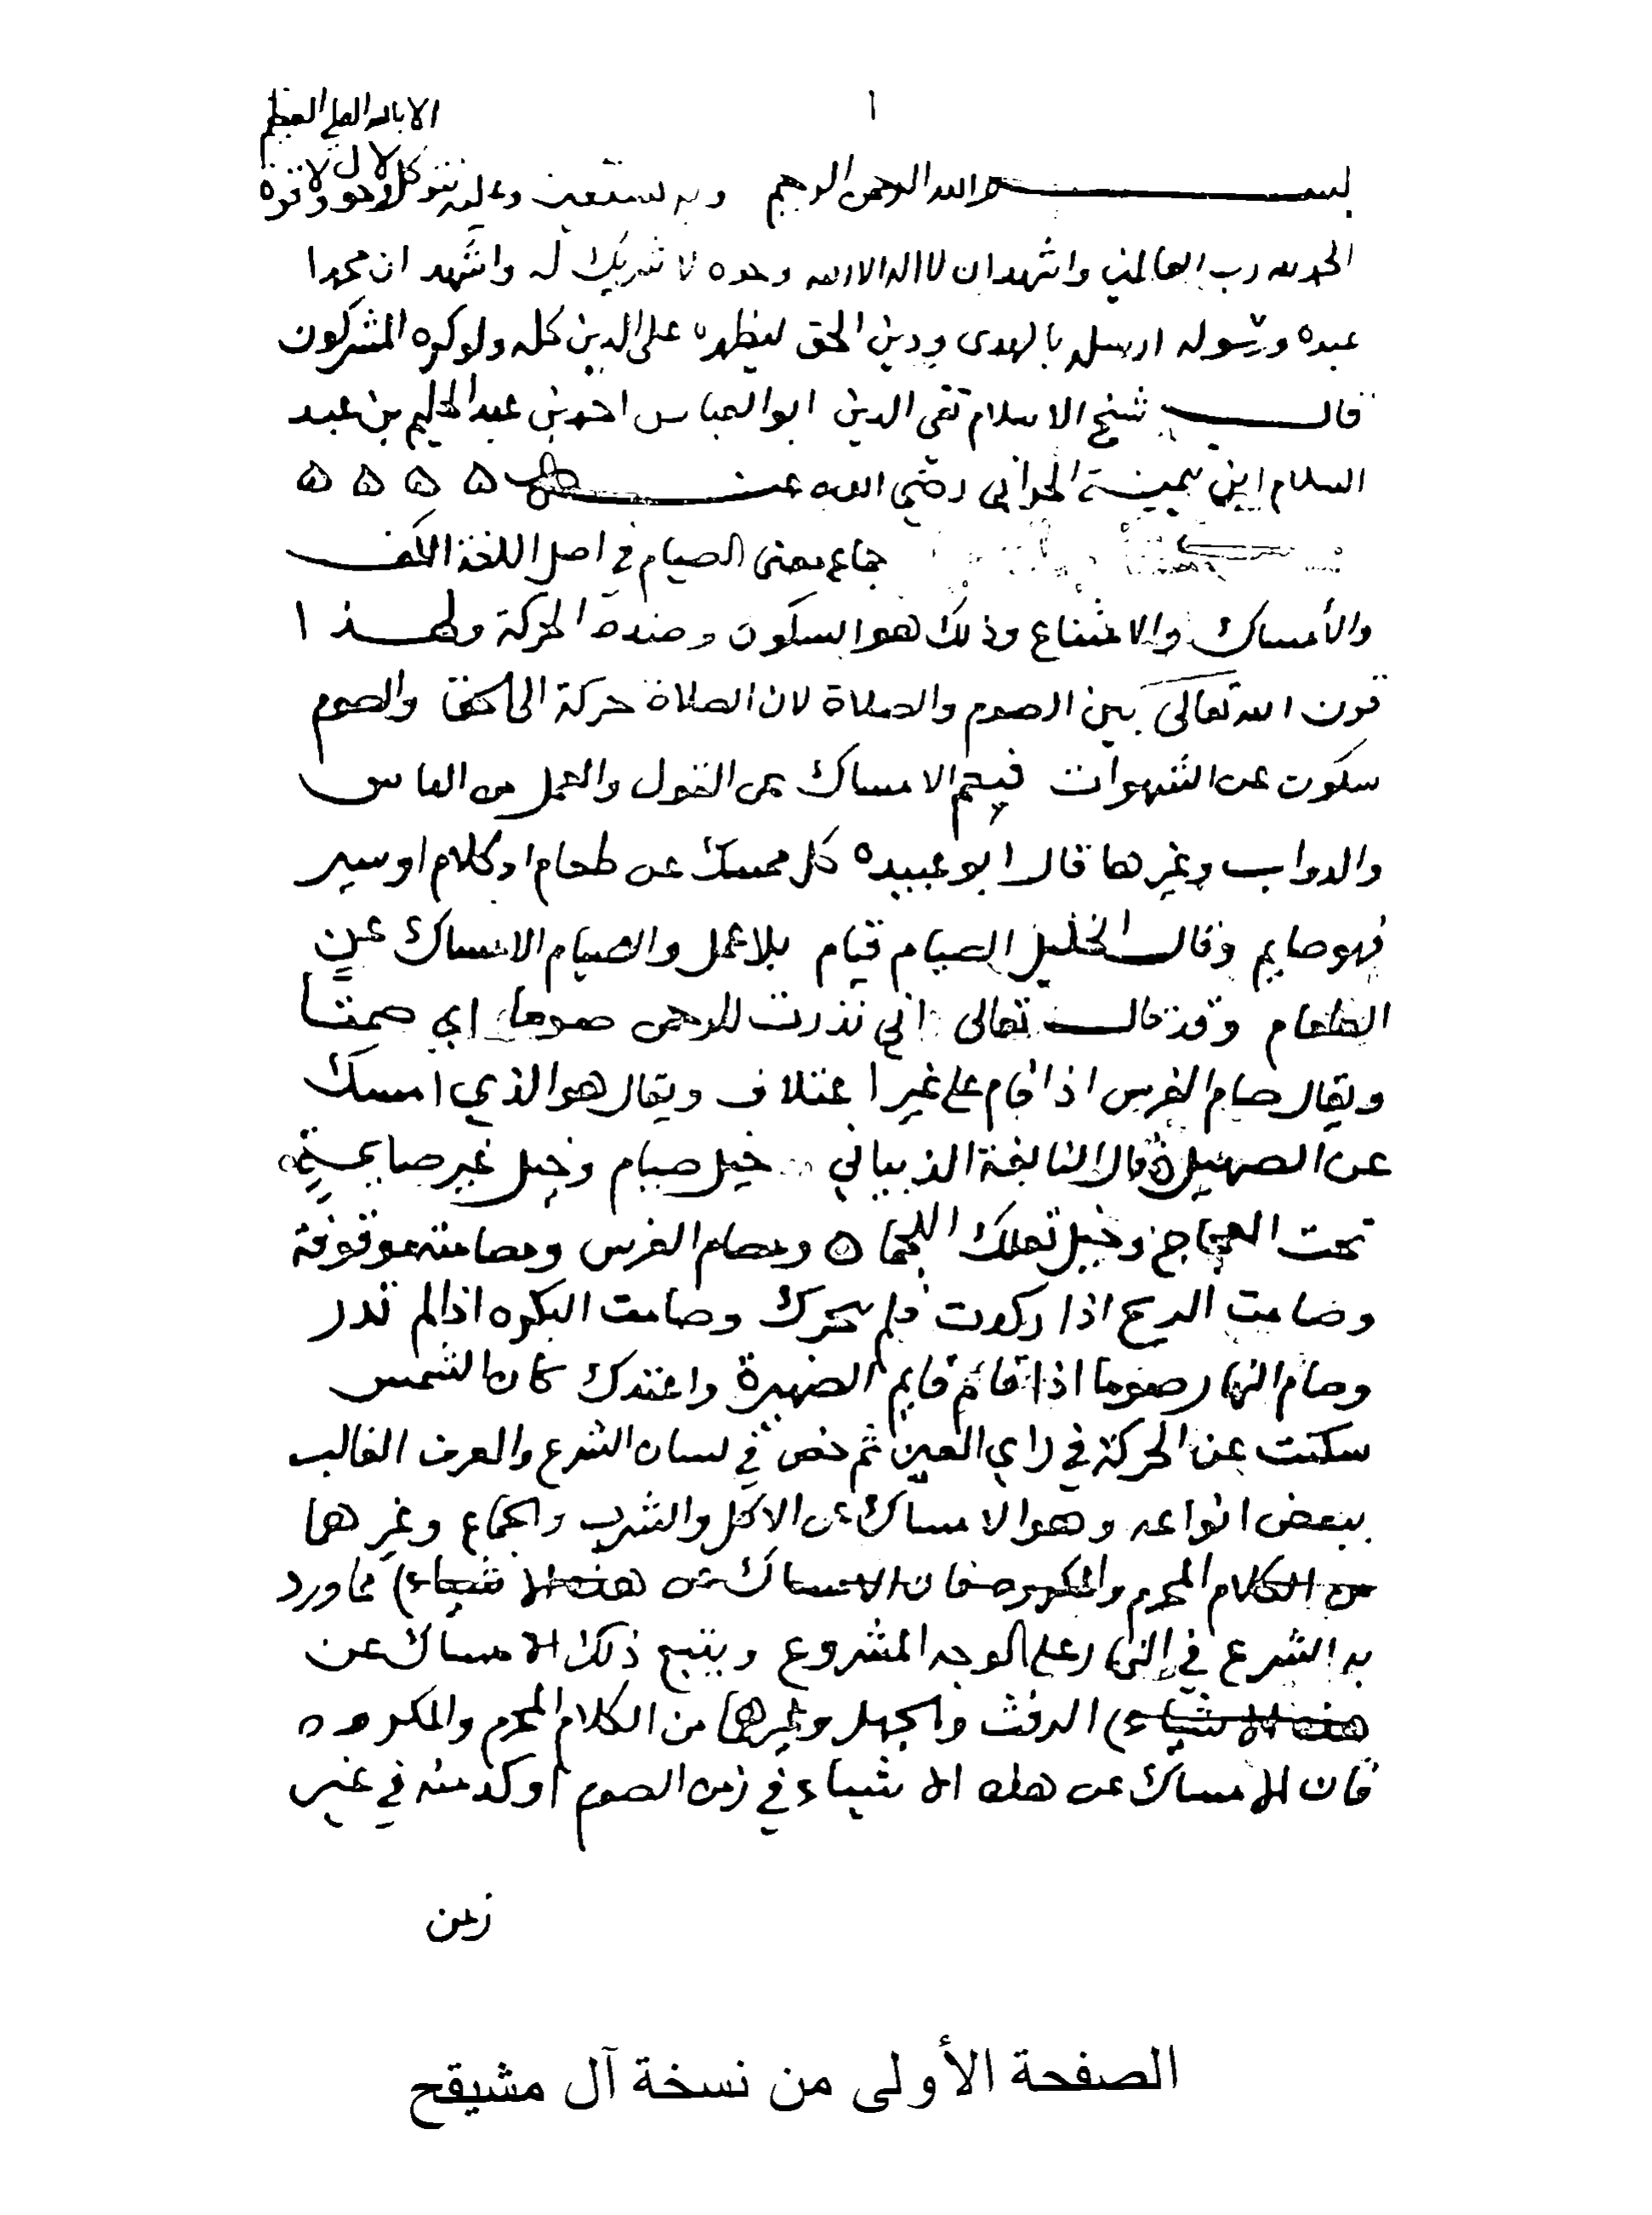 ١
بسم الله الرحمن الرحيم وبه نستعين وعليه نتوكل ولا حول ولا قوة
الا بالله العلي العظيم
الحمد لله رب العالمين واشهد ان لا اله الا الله وحده لا شريك له واشهد ان محمدا
عبده ورسوله ارسله بالهدى ودين الحق ليظهره على الدين كله ولو كره المشركون
قال شيخ الاسلام تقي الدين ابو العباس احمد بن عبد الحليم بن عبد
السلام ابن تيمية الحراني رضي الله عنه ه ه ه ه
جماع معنى الصيام في اصل اللغة الكف
والأمساك والامتناع وذلك هو السكون وضده الحركة ولهذا
قرن الله تعالى بين الصوم والصلاة لان الصلاة حركة الى الحق والصوم
سكون عن الشهوات فيعم الامساك عن القول والعمل من الناس
والدواب وغيرها قال ابو عبيده كل ممسك عن طعام او كلام او سير
فهو صايم وقال الخليل الصيام قيام بلا عمل والصيام الامساك عن
الطعام وقد قال تعالى اني نذرت للرحمن صوما اي صمتا
ويقال صام الفرس اذا قام على غير اعتلاف ويقال هو الذي امسك
عن الصهيل ه قال النابغة الذبياني خيل صيام وخيل غير صايمة
تحت العجاج وخيل تعلك اللجما ه ومصام الفرس ومصامته موقوفة
وصامت الريح اذا ركدت فلم تحرك وصامت البكره اذا لم تدر
وصام النهار صوما اذا قام قايم الضهيرة واعتدل كان الشمس
سكنت عن الحركة في راي العين ثم خص في لسان الشرع والعرف الغالب
ببعض انواعه وهو الامساك عن الاكل والشرب والجماع وغيرها
من الكلام المحرم والمكروه فان الامساك عن هذه الاشياء مما ورد
به الشرع في النهار على الوجه المشروع ويتبع ذلك الامساك عن
هذه الاشياء الرفث والجهل وغيرها من الكلام المحرم والمكروه
فان الامساك عن هذه الاشياء في زمن الصوم اوكد منه في غير
زمن
الصفحة الأولى من نسخة آل مشيقح